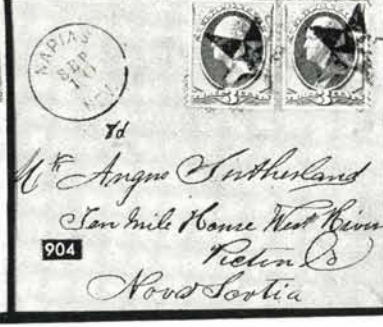 NAPIAS
SEP
10
3 3
Mr Angus Sutherland
Ten Mile House West River
904
Pictou Co
Nova Scotia